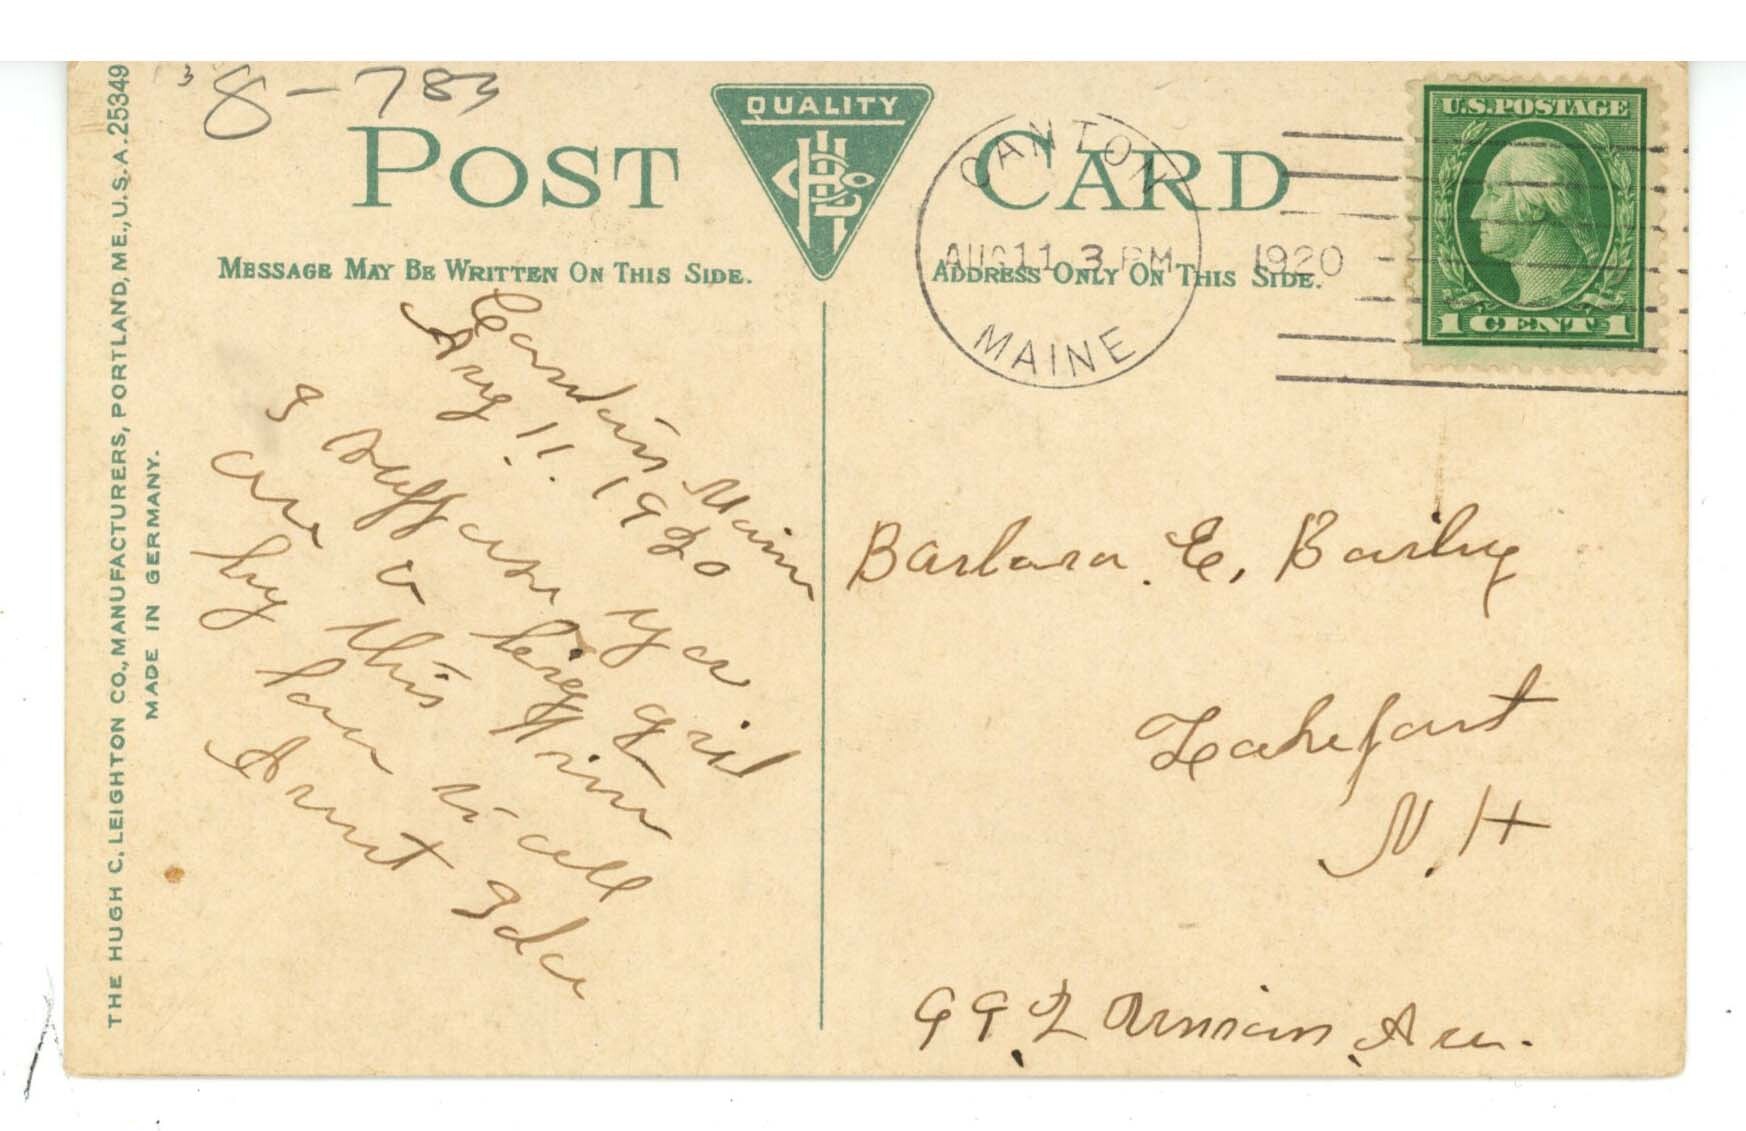 8-783
POST CARD
QUALITY
MESSAGE MAY BE WRITTEN ON THIS SIDE.
ADDRESS ONLY ON THIS SIDE.
CANTON
AUG 11 3 PM 1920
MAINE
U.S.POSTAGE
1 CENT 1
THE HUGH C. LEIGHTON CO., MANUFACTURERS, PORTLAND, ME., U.S.A. 25349
MADE IN GERMANY.
Canton Maine
Aug 11. 1920
I suppose you
are a big girl
by this time
Aunt Ida
Barbara. E. Bailey
Lakeport
N. H
99 Union Ave.